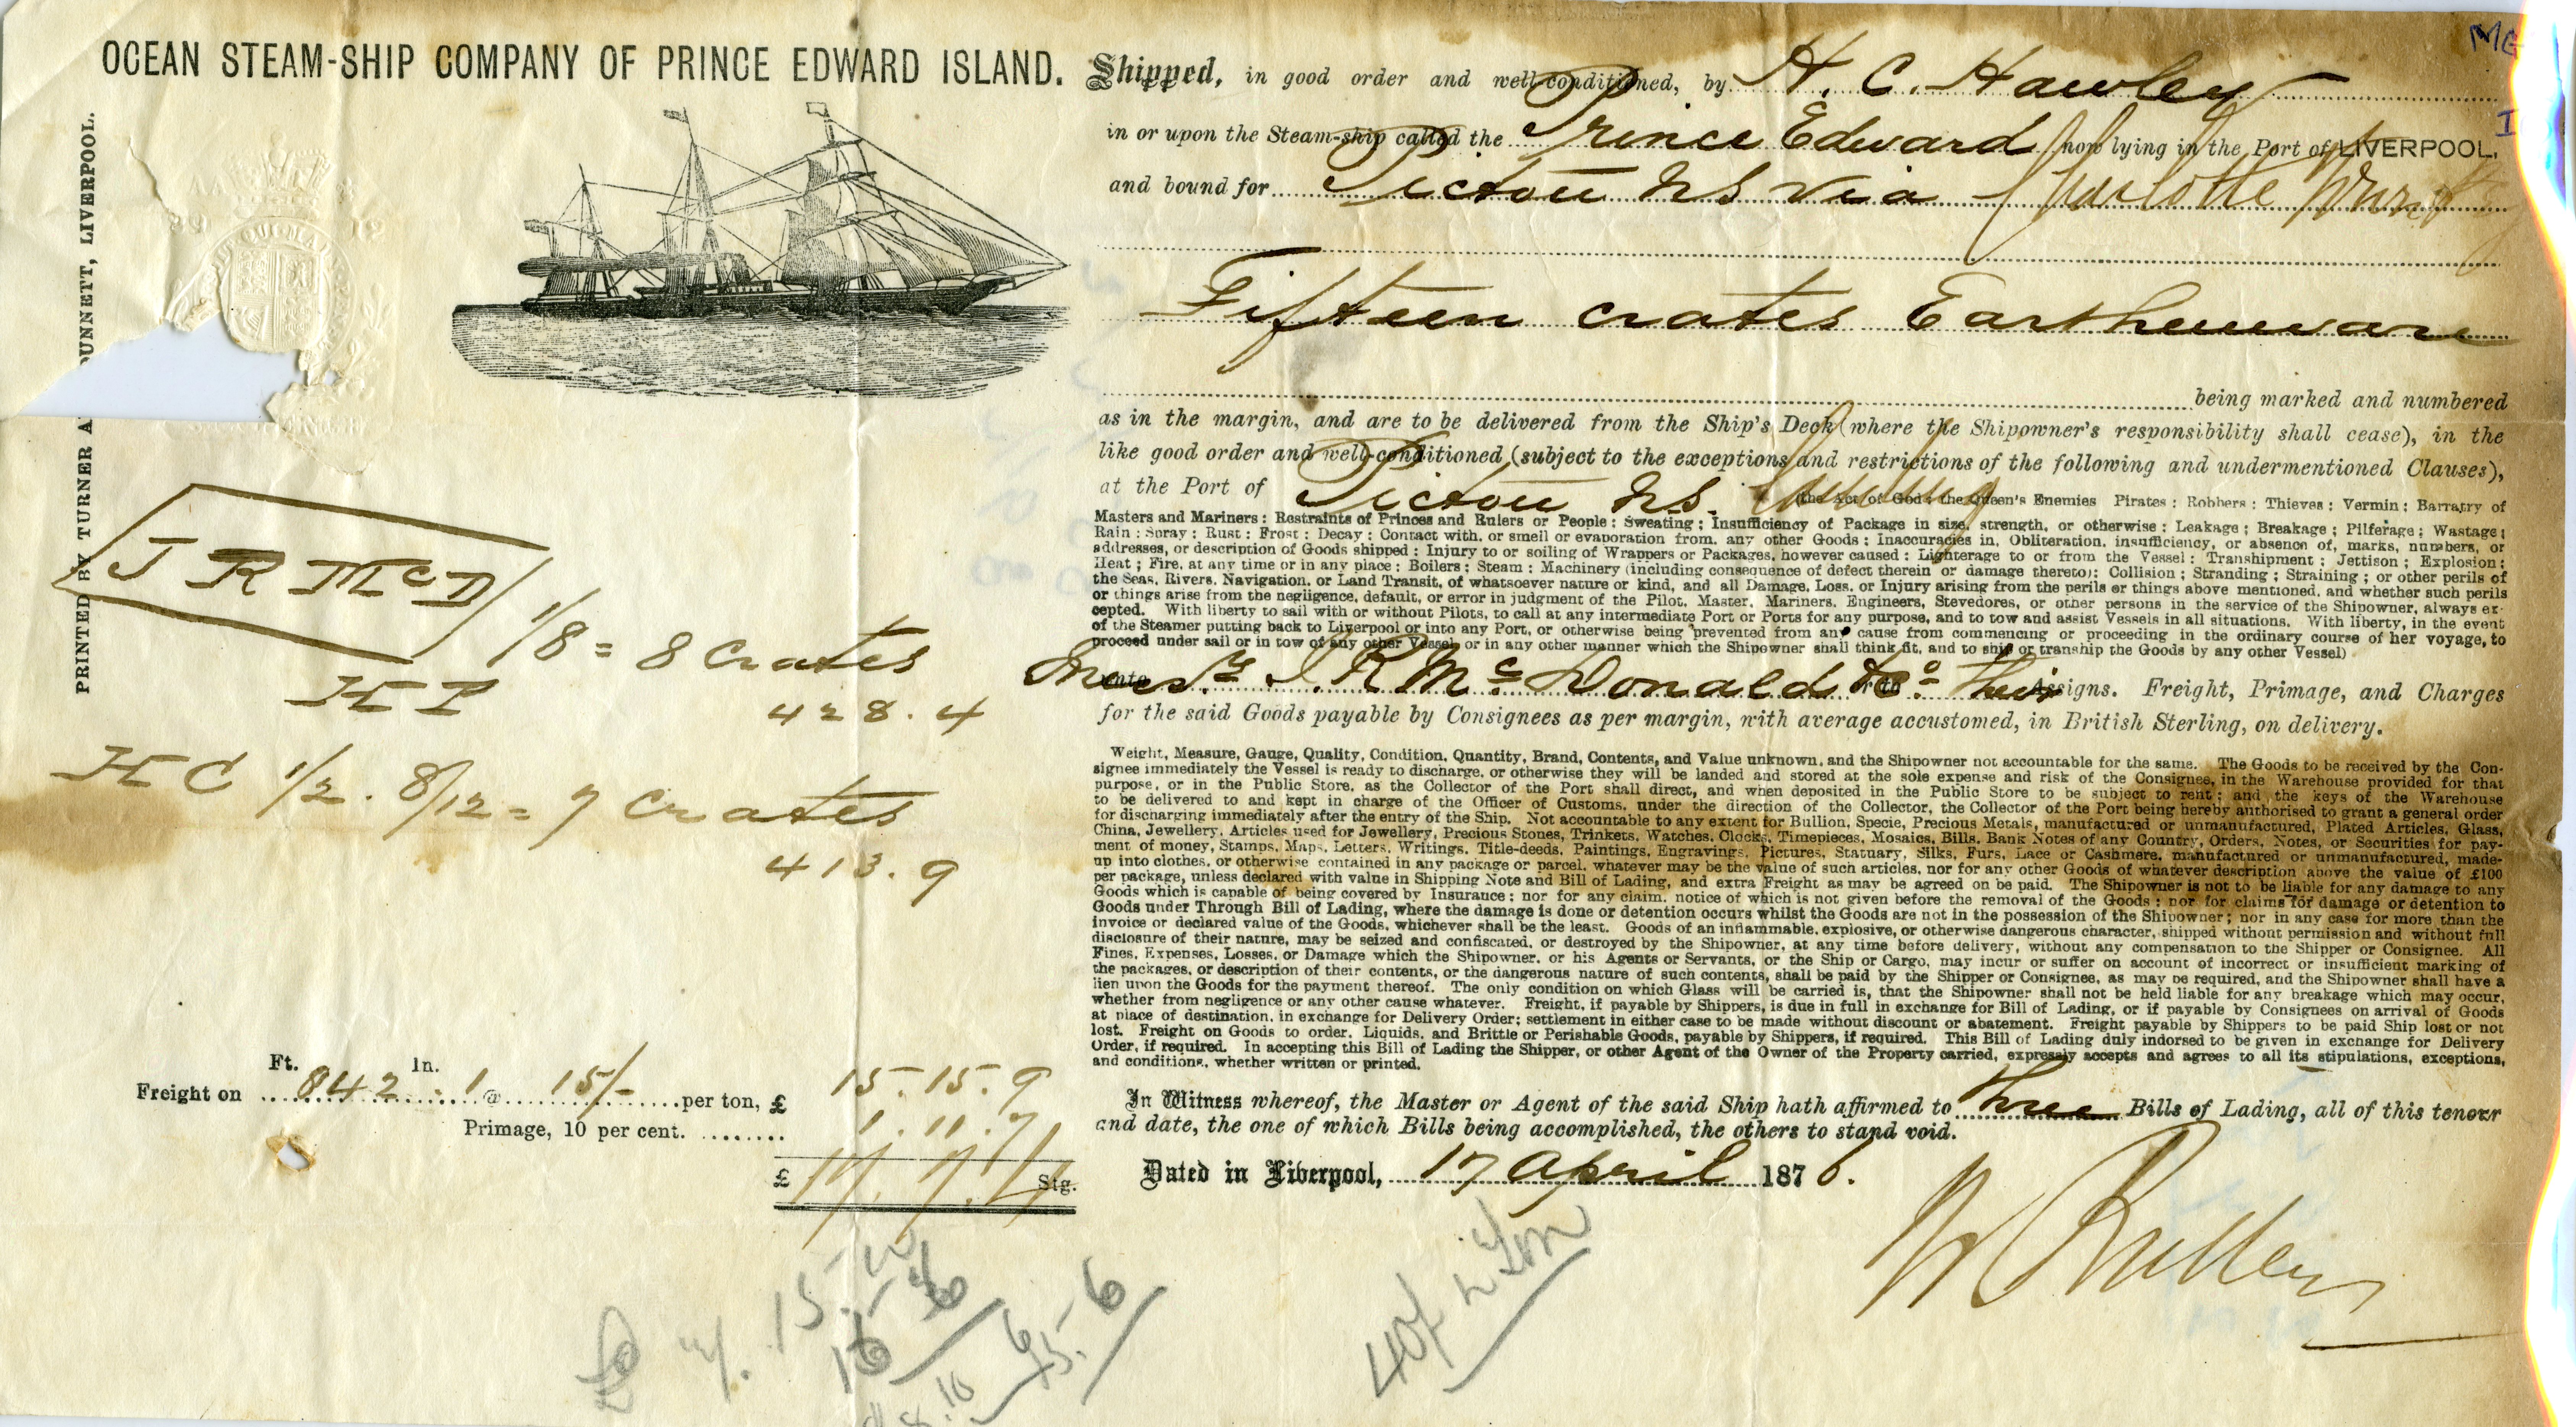 OCEAN STEAM-SHIP COMPANY OF PRINCE EDWARD ISLAND.
PRINTED BY TURNER A DUNNETT, LIVERPOOL.
J R McD
1/8 = 8 Crates
H I
428.4
H C 1/2. 8/12 = 7 Crates
413.9
Ft. In.
Freight on 842 . 1 @ 15/- per ton, £ 15.15.9
Primage, 10 per cent. ........ 1.11.7
£ 17.7.4 Stg.
Shipped, in good order and well-conditioned, by H. C. Hawley
in or upon the Steam-ship called the Prince Edward now lying in the Port of LIVERPOOL,
and bound for Pictou NS via Charlotte
Fifteen crates Earthenware
being marked and numbered
as in the margin, and are to be delivered from the Ship's Deck (where the Shipowner's responsibility shall cease), in the
like good order and well-conditioned (subject to the exceptions and restrictions of the following and undermentioned Clauses),
at the Port of Pictou NS. (the Act of God: the Queen's Enemies Pirates: Robbers: Thieves: Vermin: Barratry of
Masters and Mariners: Restraints of Princes and Rulers or People: Sweating; Insufficiency of Package in size, strength, or otherwise: Leakage; Breakage; Pilferage; Wastage;
Rain: Spray: Rust: Frost: Decay: Contact with, or smell or evaporation from, any other Goods: Inaccuracies in, Obliteration, insufficiency, or absence of, marks, numbers, or
addresses, or description of Goods shipped: Injury to or soiling of Wrappers or Packages, however caused: Lighterage to or from the Vessel: Transhipment: Jettison; Explosion:
Heat; Fire, at any time or in any place: Boilers; Steam: Machinery (including consequence of defect therein or damage thereto): Collision; Stranding; Straining; or other perils of
the Seas, Rivers, Navigation, or Land Transit, of whatsoever nature or kind, and all Damage, Loss, or Injury arising from the perils or things above mentioned, and whether such perils
or things arise from the negligence, default, or error in judgment of the Pilot, Master, Mariners, Engineers, Stevedores, or other persons in the service of the Shipowner, always ex-
cepted. With liberty to sail with or without Pilots, to call at any intermediate Port or Ports for any purpose, and to tow and assist Vessels in all situations. With liberty, in the event
of the Steamer putting back to Liverpool or into any Port, or otherwise being prevented from any cause from commencing or proceeding in the ordinary course of her voyage, to
proceed under sail or in tow of any other Vessel or in any other manner which the Shipowner shall think fit, and to ship or tranship the Goods by any other Vessel)
unto Messrs J. R. McDonald & Co or to their Assigns. Freight, Primage, and Charges
for the said Goods payable by Consignees as per margin, with average accustomed, in British Sterling, on delivery.
Weight, Measure, Gauge, Quality, Condition, Quantity, Brand, Contents, and Value unknown, and the Shipowner not accountable for the same. The Goods to be received by the Con-
signee immediately the Vessel is ready to discharge, or otherwise they will be landed and stored at the sole expense and risk of the Consignee, in the Warehouse provided for that
purpose, or in the Public Store, as the Collector of the Port shall direct, and when deposited in the Public Store to be subject to rent; and the keys of the Warehouse
to be delivered to and kept in charge of the Officer of Customs, under the direction of the Collector, the Collector of the Port being hereby authorised to grant a general order
for discharging immediately after the entry of the Ship. Not accountable to any extent for Bullion, Specie, Precious Metals, manufactured or unmanufactured, Plated Articles, Glass,
China, Jewellery, Articles used for Jewellery, Precious Stones, Trinkets, Watches, Clocks, Timepieces, Mosaics, Bills, Bank Notes of any Country, Orders, Notes, or Securities for pay-
ment of money, Stamps, Maps, Letters, Writings, Title-deeds, Paintings, Engravings, Pictures, Statuary, Silks, Furs, Lace or Cashmere, manufactured or unmanufactured, made-
up into clothes, or otherwise contained in any package or parcel, whatever may be the value of such articles, nor for any other Goods of whatever description above the value of £100
per package, unless declared with value in Shipping Note and Bill of Lading, and extra Freight as may be agreed on be paid. The Shipowner is not to be liable for any damage to any
Goods which is capable of being covered by Insurance; nor for any claim, notice of which is not given before the removal of the Goods; nor for claims for damage or detention to
Goods under Through Bill of Lading, where the damage is done or detention occurs whilst the Goods are not in the possession of the Shipowner; nor in any case for more than the
invoice or declared value of the Goods, whichever shall be the least. Goods of an inflammable, explosive, or otherwise dangerous character, shipped without permission and without full
disclosure of their nature, may be seized and confiscated, or destroyed by the Shipowner, at any time before delivery, without any compensation to the Shipper or Consignee. All
Fines, Expenses, Losses, or Damage which the Shipowner, or his Agents or Servants, or the Ship or Cargo, may incur or suffer on account of incorrect or insufficient marking of
the packages, or description of their contents, or the dangerous nature of such contents, shall be paid by the Shipper or Consignee, as may be required, and the Shipowner shall have a
lien upon the Goods for the payment thereof. The only condition on which Glass will be carried is, that the Shipowner shall not be held liable for any breakage which may occur,
whether from negligence or any other cause whatever. Freight, if payable by Shippers, is due in full in exchange for Bill of Lading, or if payable by Consignees on arrival of Goods
at place of destination, in exchange for Delivery Order; settlement in either case to be made without discount or abatement. Freight payable by Shippers to be paid Ship lost or not
lost. Freight on Goods to order, Liquids, and Brittle or Perishable Goods, payable by Shippers, if required. This Bill of Lading duly indorsed to be given in exchange for Delivery
Order, if required. In accepting this Bill of Lading the Shipper, or other Agent of the Owner of the Property carried, expressly accepts and agrees to all its stipulations, exceptions,
and conditions, whether written or printed.
In Witness whereof, the Master or Agent of the said Ship hath affirmed to three Bills of Lading, all of this tenour
and date, the one of which Bills being accomplished, the others to stand void.
Dated in Liverpool, 17 April 1876.